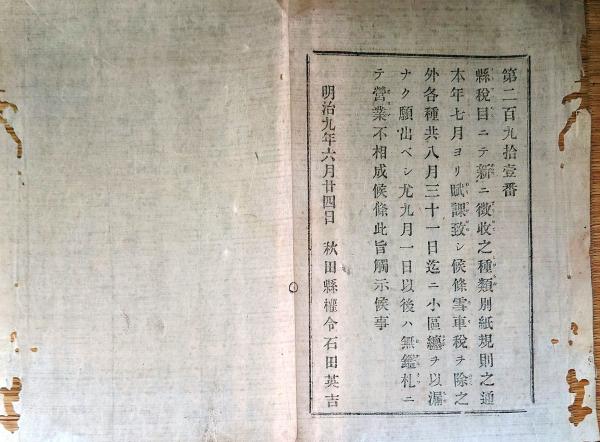 第二百九拾壹番
縣税目ニテ新ニ徴收之種類別紙規則之通
本年七月ヨリ賦課致シ候條雪車税ヲ除之
外各種共八月三十一日迄ニ小區纏ヲ以漏
ナク願出ベシ尤九月一日以後ハ無鑑札ニ
テ營業不相成候條此旨觸示候事
明治九年六月廿四日 秋田縣權令石田英吉